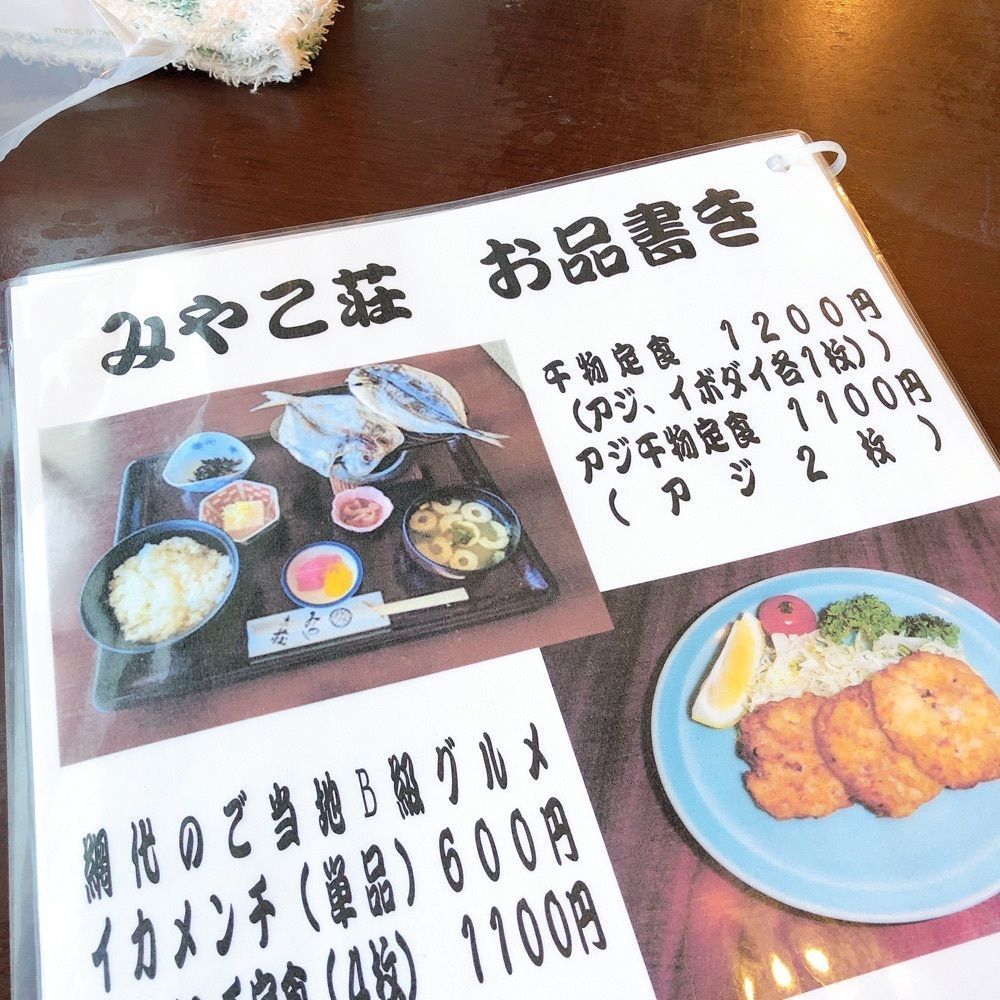 みやこ荘 お品書き
干物定食 1200円
(アジ、イボダイ各1枚))
アジ干物定食 1100円
(アジ2枚)
網代のご当地B級グルメ
イカメンチ(単品)600円
チ定食(4枚) 1100円